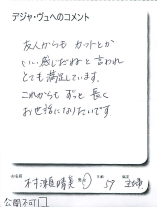 デジャ・ヴュへのコメント
友人からも カットとか
いい感じだねと 言われ
とても 満足しています。
これからも ずっと 長く
お世話になりたいです。
お名前 木村 晴美
公開不可□